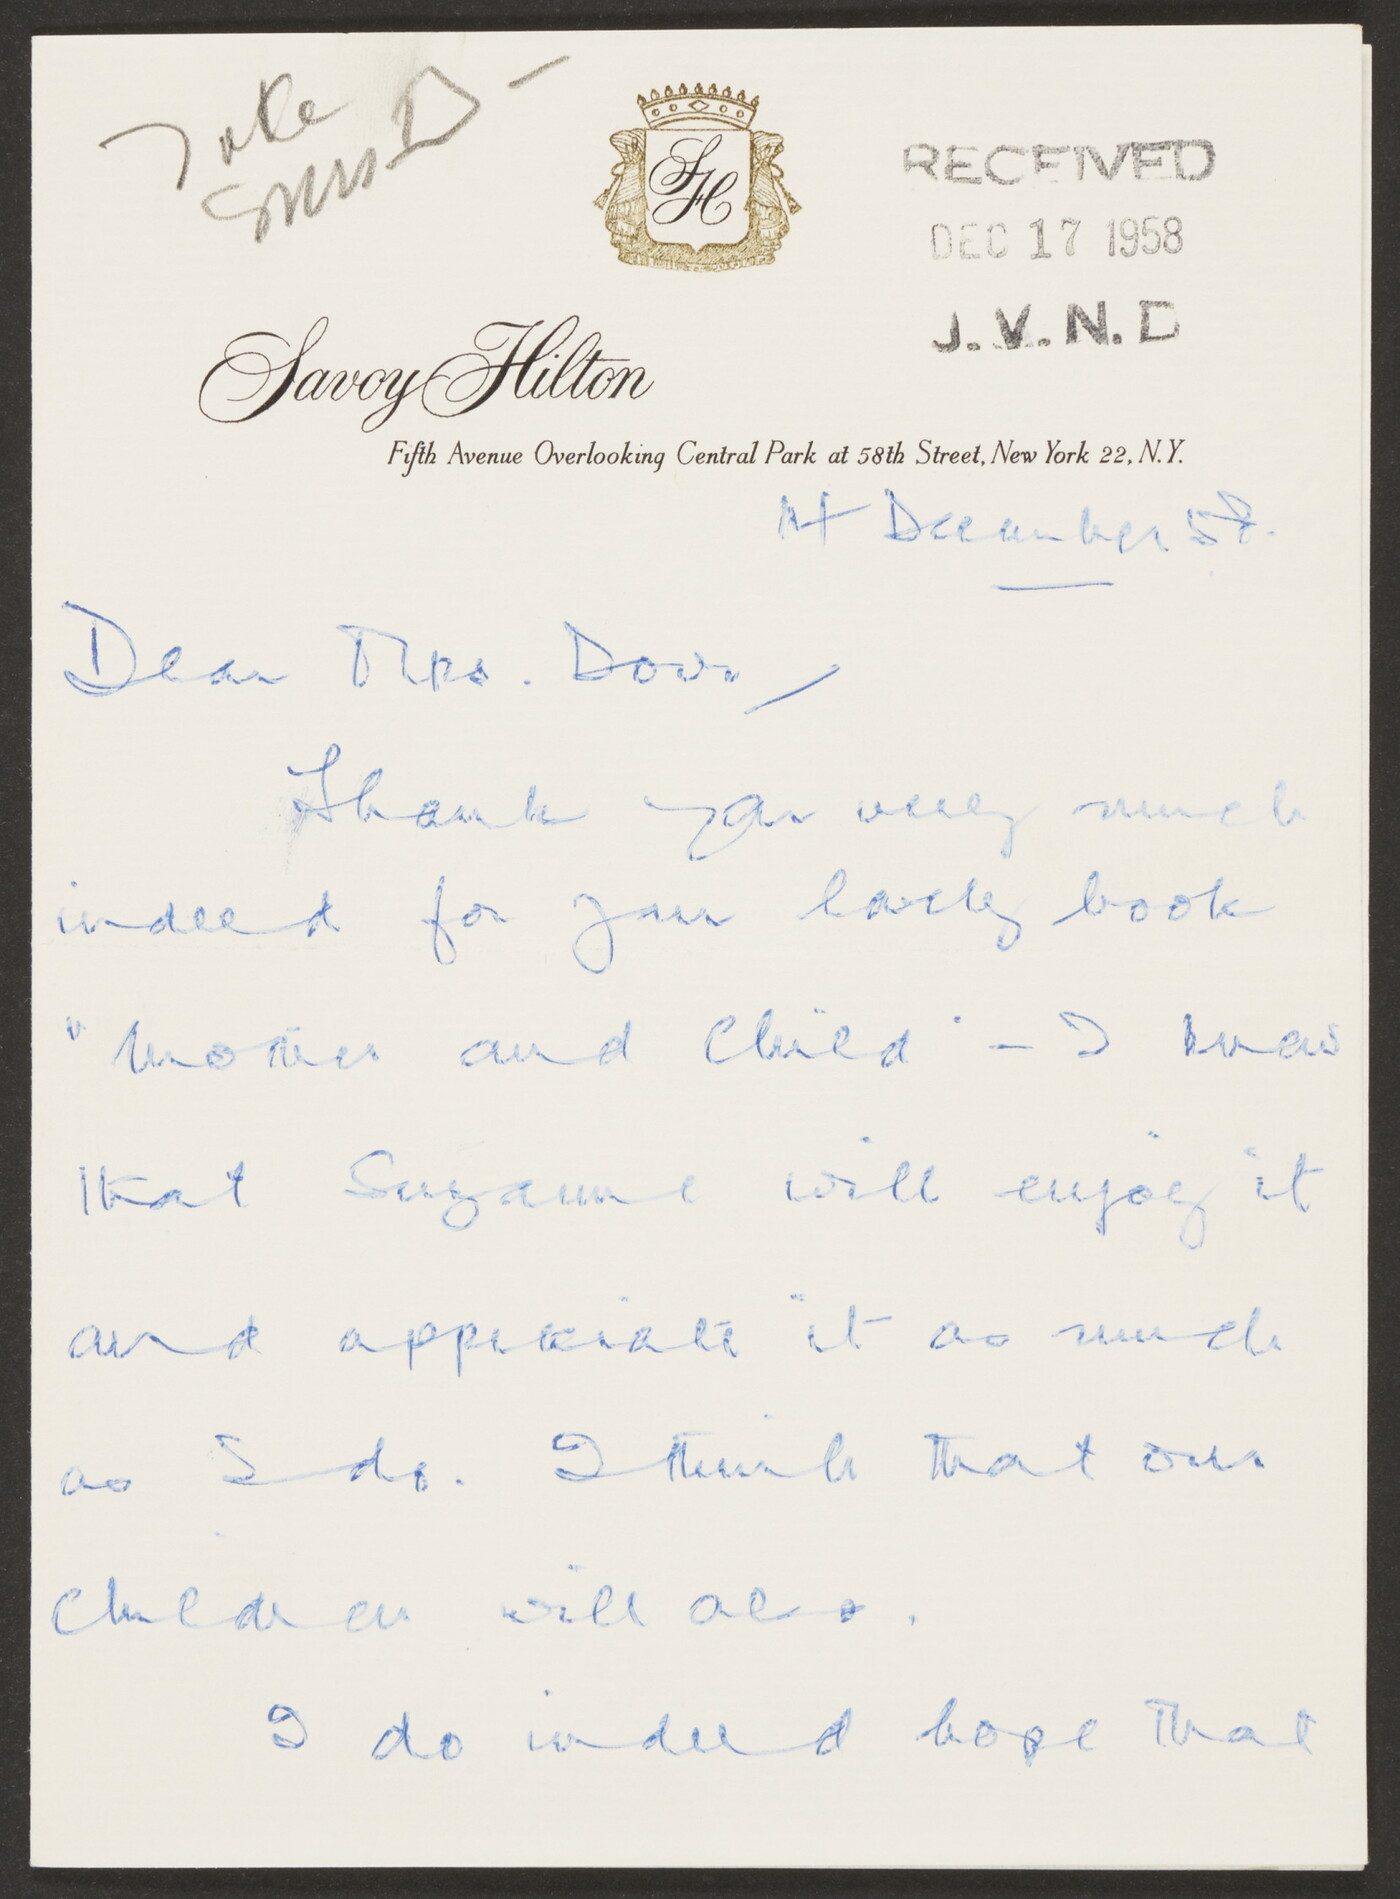 Take
SH
RECEIVED
DEC 17 1958
J.V.N.D
Savoy Hilton
Fifth Avenue Overlooking Central Park at 58th Street, New York 22, N.Y.
December 58.
Dear Mrs. Dows,
Thank you very much
indeed for your lovely book
"Mother and Child" - I know
that Suzanne will enjoy it
and appreciate it as much
as I do. I think that our
children will also.
I do indeed hope that